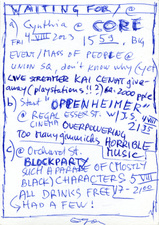 WAITING FOR/@
a) Cynthia @ CORE
FRI 4 VIII 2023 15 59, BIG
EVENT/MASS OF PEOPLE @
UNION SQ, don't know why (yet)
LIVE STREAMER KAI CENAT give
away (playstations!!?) ca. 2000 pple
b) Start "OPPENHEIMER"
@ REGAL ESSEX ST. w/J.S. 4 VIII
CINEMA OVERPOWERING 21 35
Too many gimmicks HORRIBLE
music
c) @ Orchard St.
BLOCKPARTY
SUCH A PARADE OF (MOSTLY
BLACK) CHARACTERS 5 VIII
ALL DRINKS FREE 17-21 00
HAD A FEW!